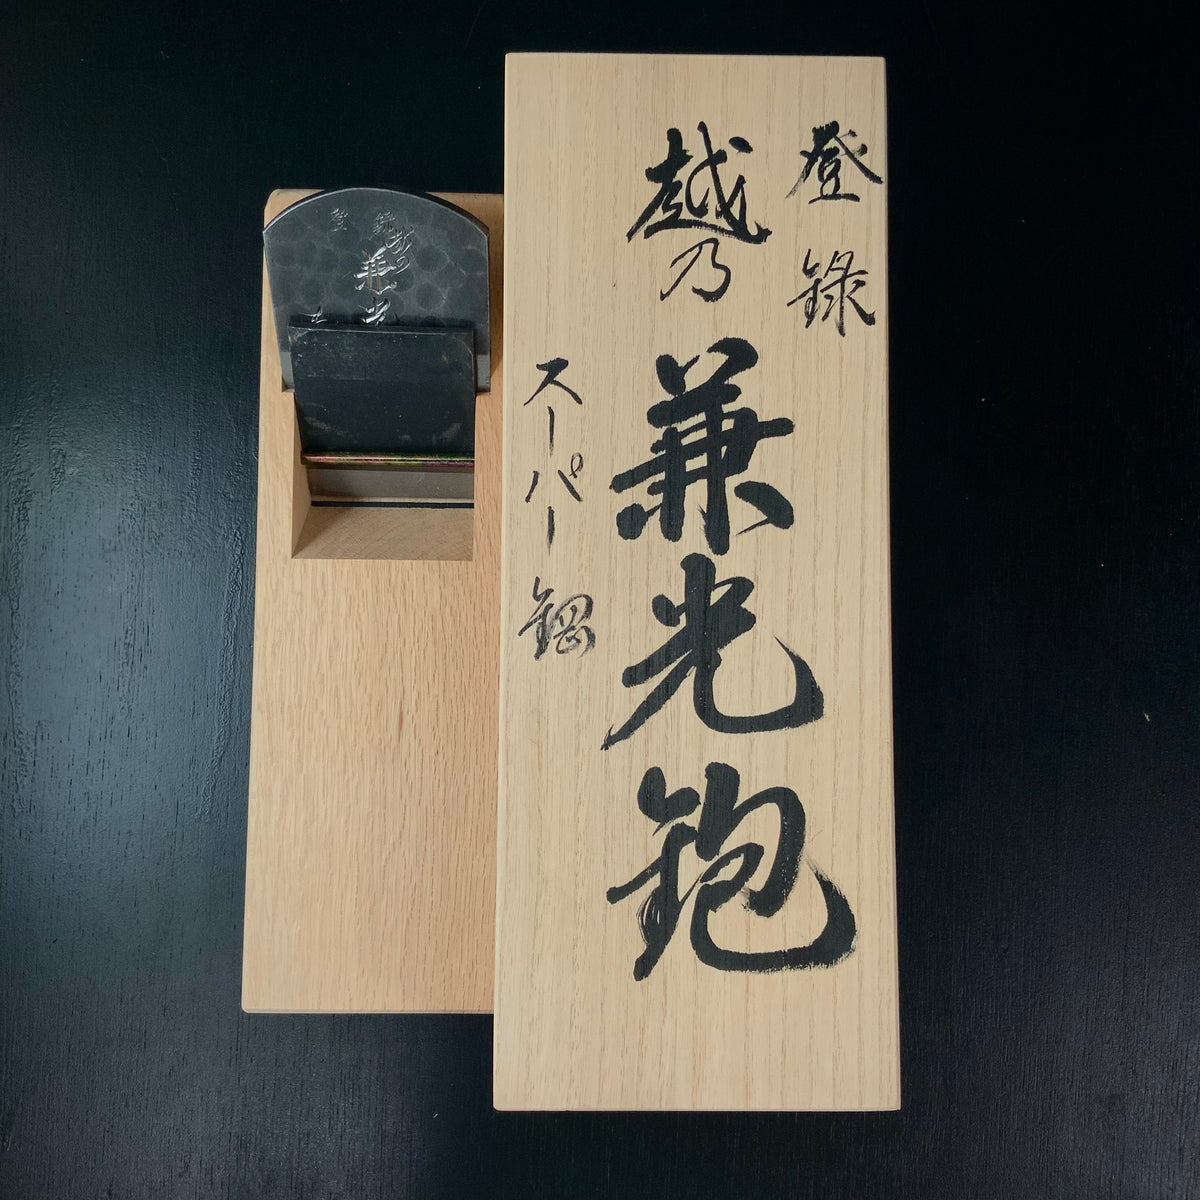 登録
越乃
兼光鉋
スーパー鋼
登録
越の
兼光